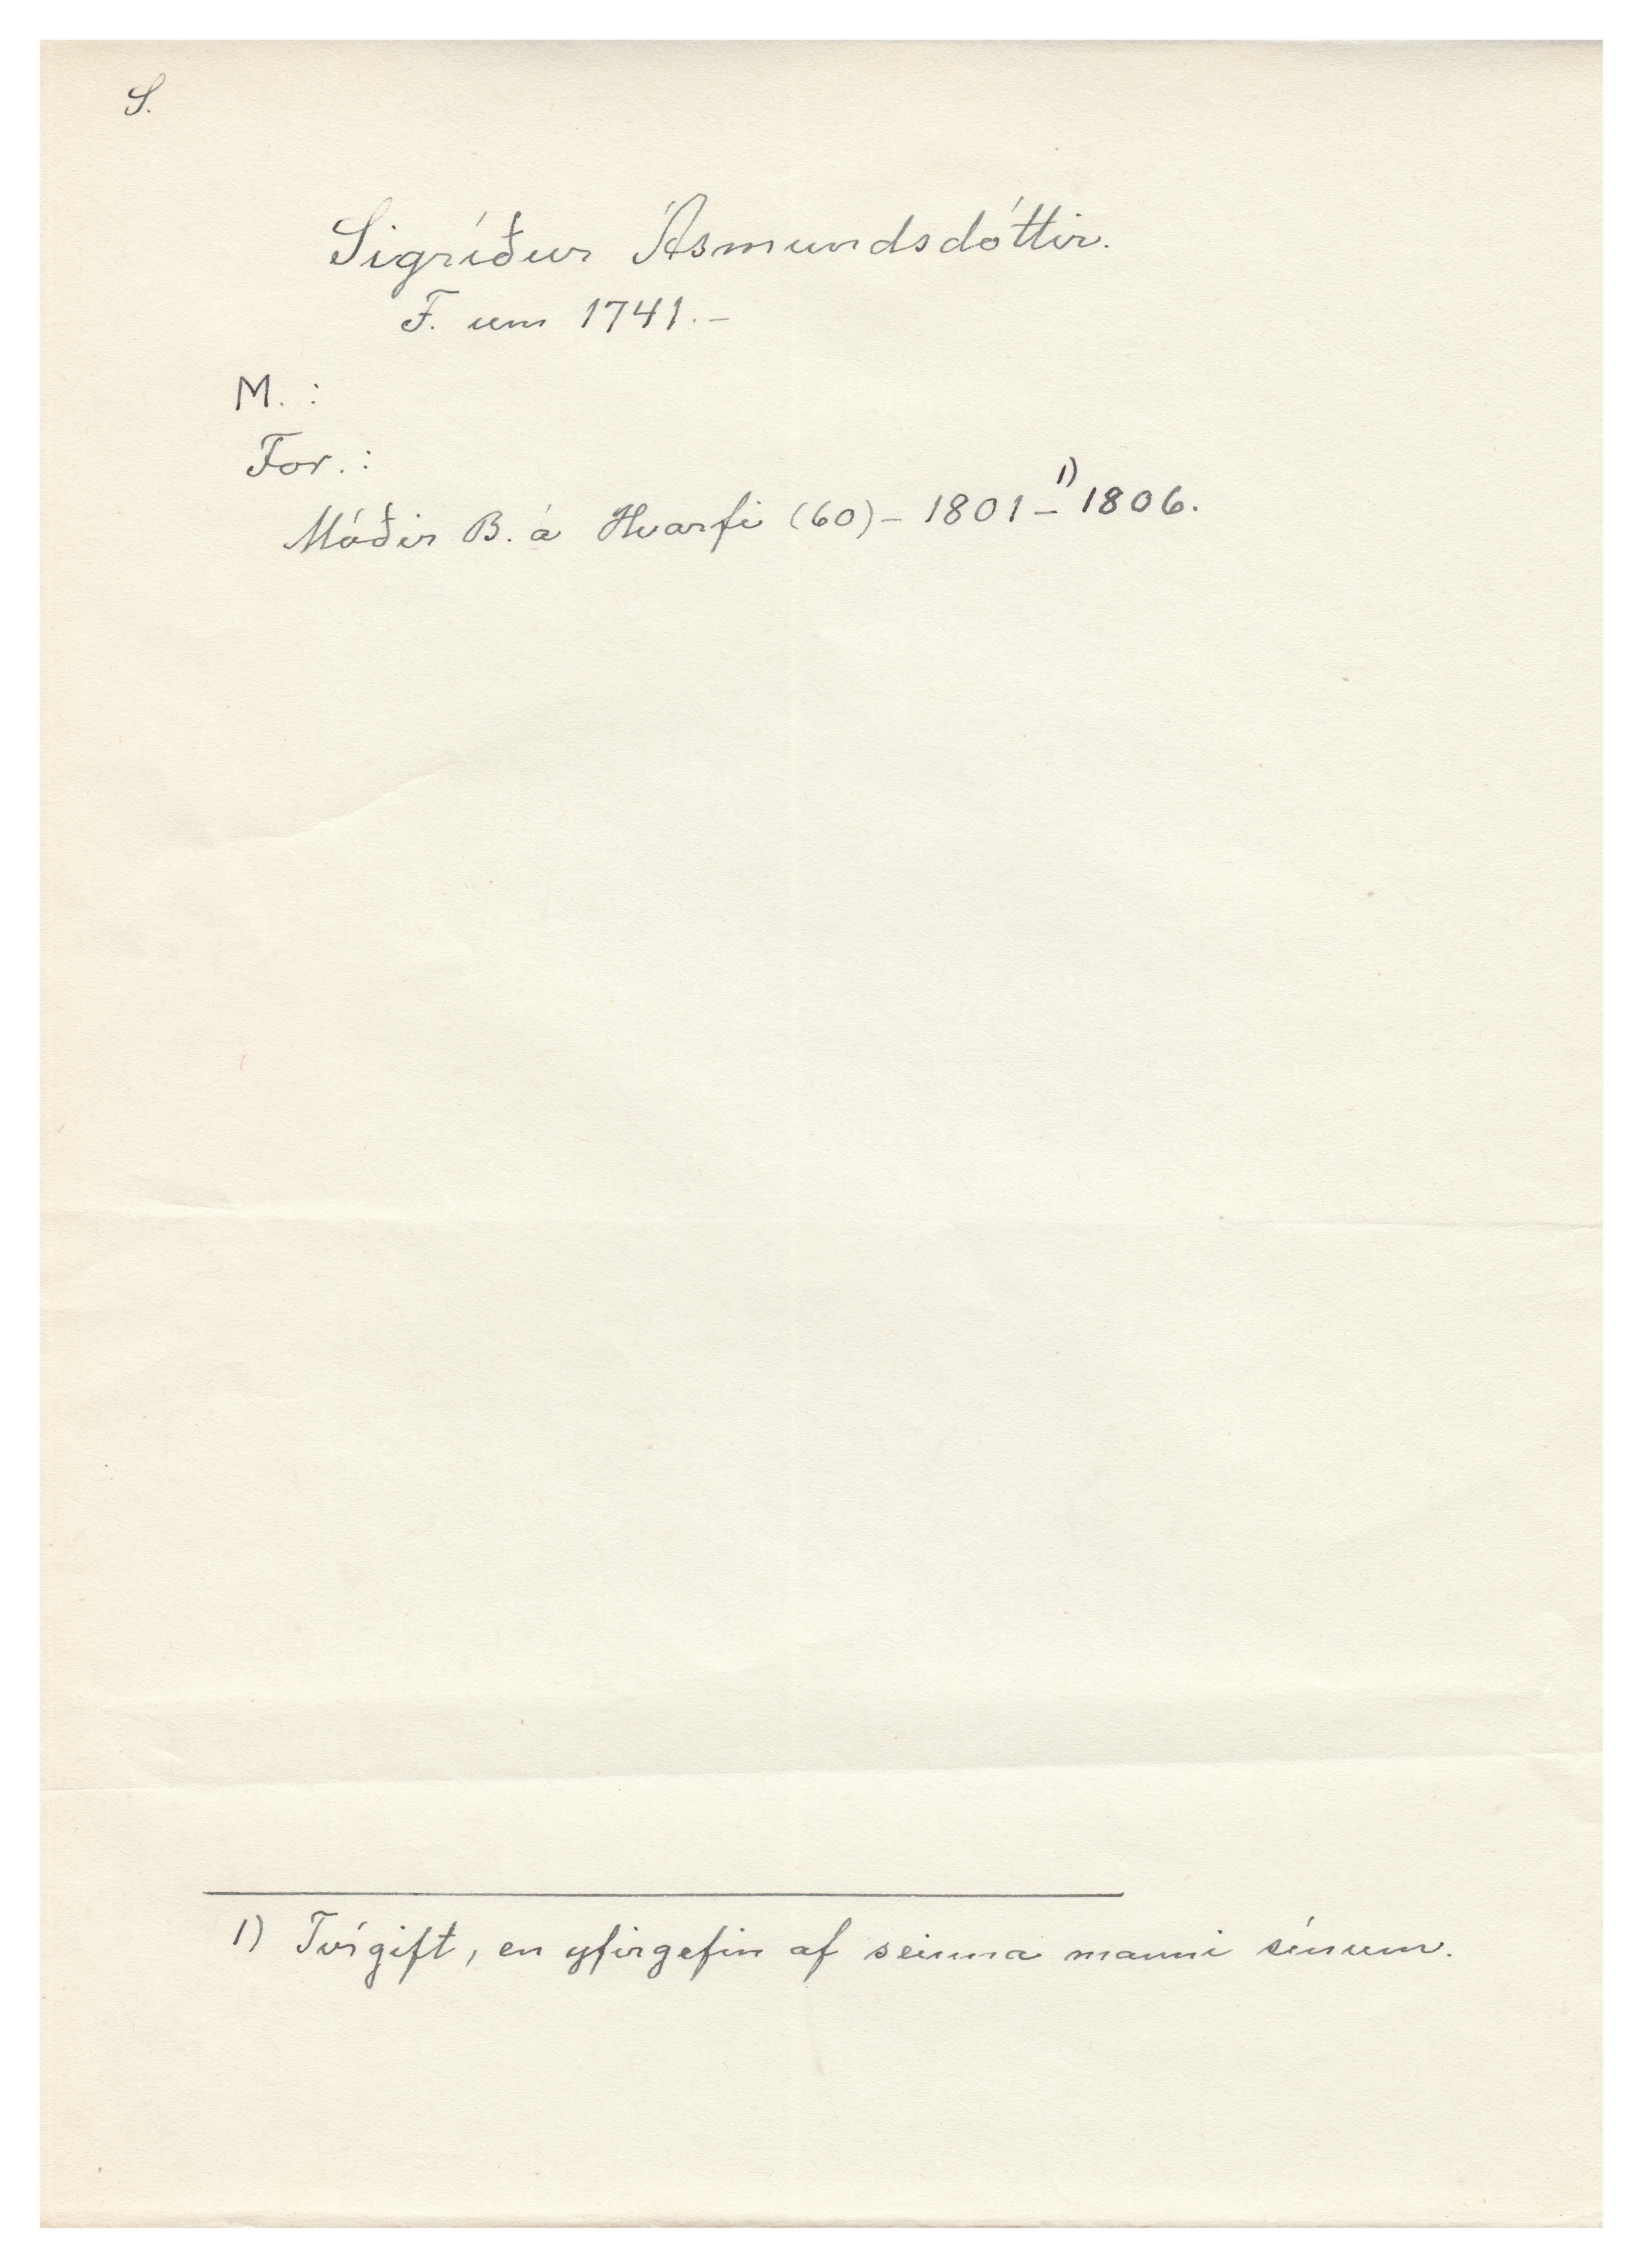 S.
Sigríður Ásmundsdóttir.
F. um 1741.-
M. :
For. :
Móðir B. á Hvarfi (60) - 1801 - 1) 1806.
1) Tvígift, en yfirgefin af seinna manni sínum.